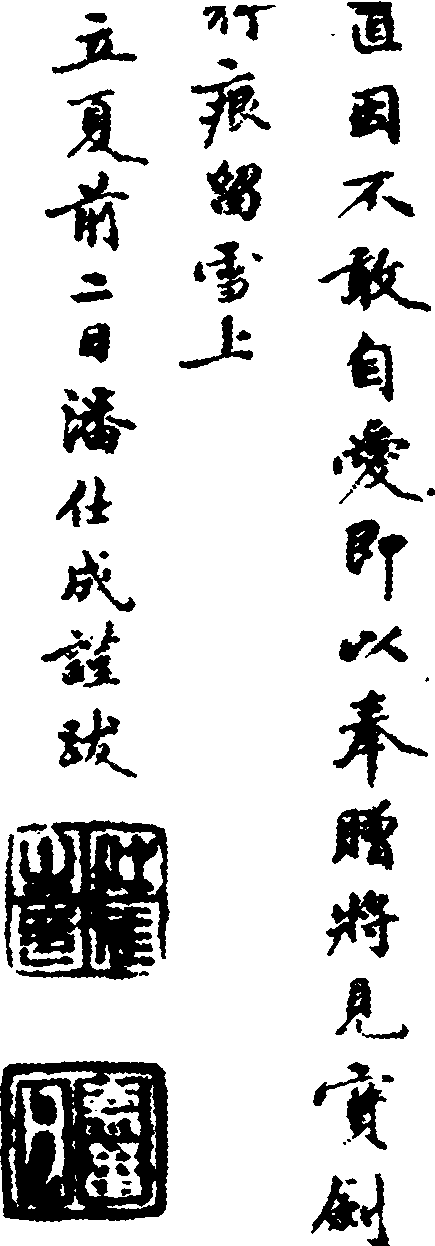 直因不敢自愛即以奉贈將見寶劍
行痕留雪上
立夏前二日潘仕成謹跋